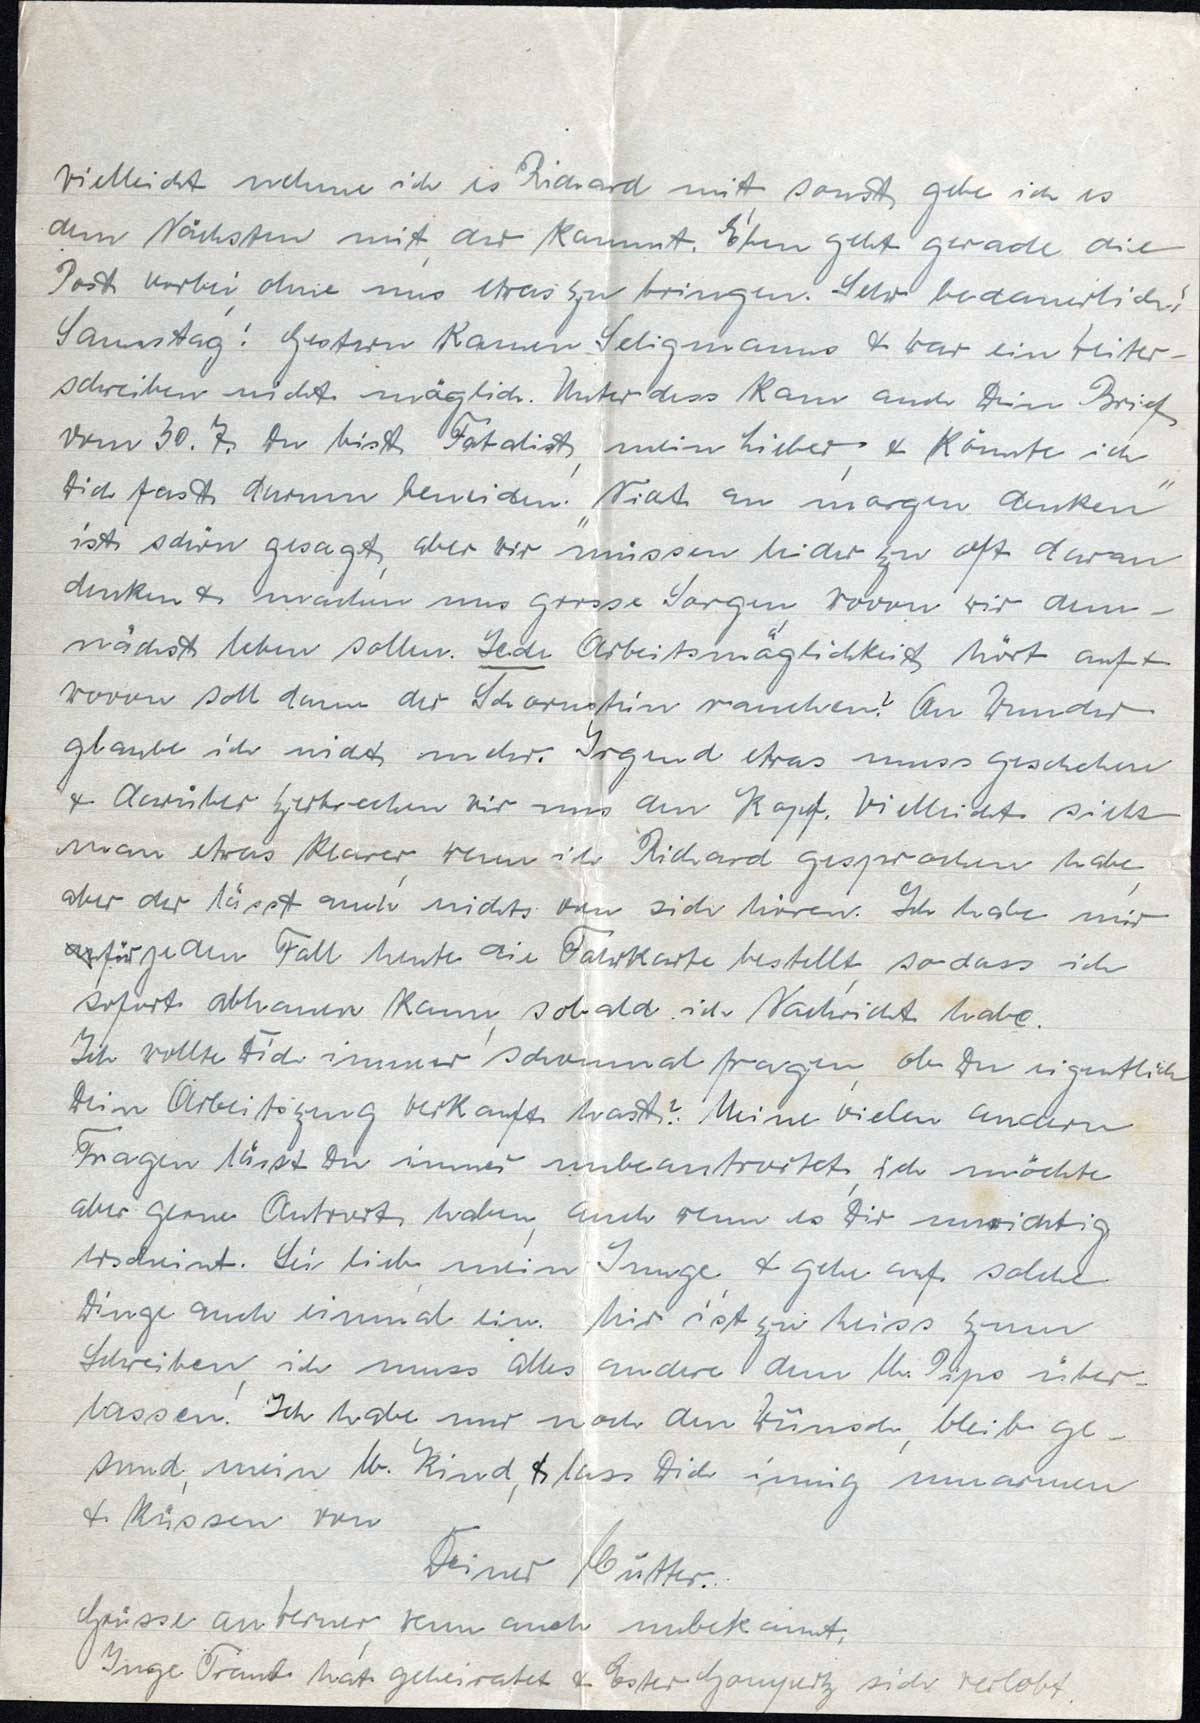 vielleicht nehme ich es Richard mit, sonst gebe ich es
dem Nächsten mit, der kommt. Eben geht gerade die
Post vorbei, ohne uns etwas zu bringen. Sehr bedauerlich!
Samstag! Gestern kamen Seligmanns & war ein Weiter-
schreiben nicht möglich. Unterdess kam auch Dein Brief
vom 30. 7. Du bist Fatalist, mein Lieber, & könnte ich
Dich fast darum beneiden. „Nicht an morgen denken"
ist schön gesagt, aber wir „müssen leider zu oft daran
denken & machen uns grosse Sorgen, wovon wir dem-
nächst leben sollen. Jede Arbeitsmöglichkeit hört auf &
wovon soll dann der Schornstein rauchen? An Wunder
glaube ich nicht mehr. Irgend etwas muss geschehen
& darüber zerbrechen wir uns den Kopf. Vielleicht sieht
man etwas klarer, wenn ich Richard gesprochen habe,
aber der lässt auch nichts von sich hören. Ich habe mir
für jeden Fall heute die Fahrkarte bestellt, sodass ich
sofort abhauen kann, sobald ich Nachricht habe.
Ich wollte Dich immer schonmal fragen, ob Du eigentlich
Dein Arbeitszeug verkauft hast? Meine vielen andern
Fragen lässt Du immer unbeantwortet, ich möchte
aber gerne Antwort haben, auch wenn es Dir unwichtig
erscheint. Sei lieb, mein Junge, & gehe auf solche
Dinge auch einmal ein. Mir ist zu heiss zum
Schreiben, ich muss alles andere dem lb. Pips über-
lassen! Ich habe nur noch den Wunsch, bleib ge-
sund, mein lb. Kind, & lass Dich innig umarmen
& küssen von
Deiner Mutter.
Grüsse an Werner, wenn auch unbekannt.
Inge Traub hat geheiratet & Ester Gompertz sich verlobt.